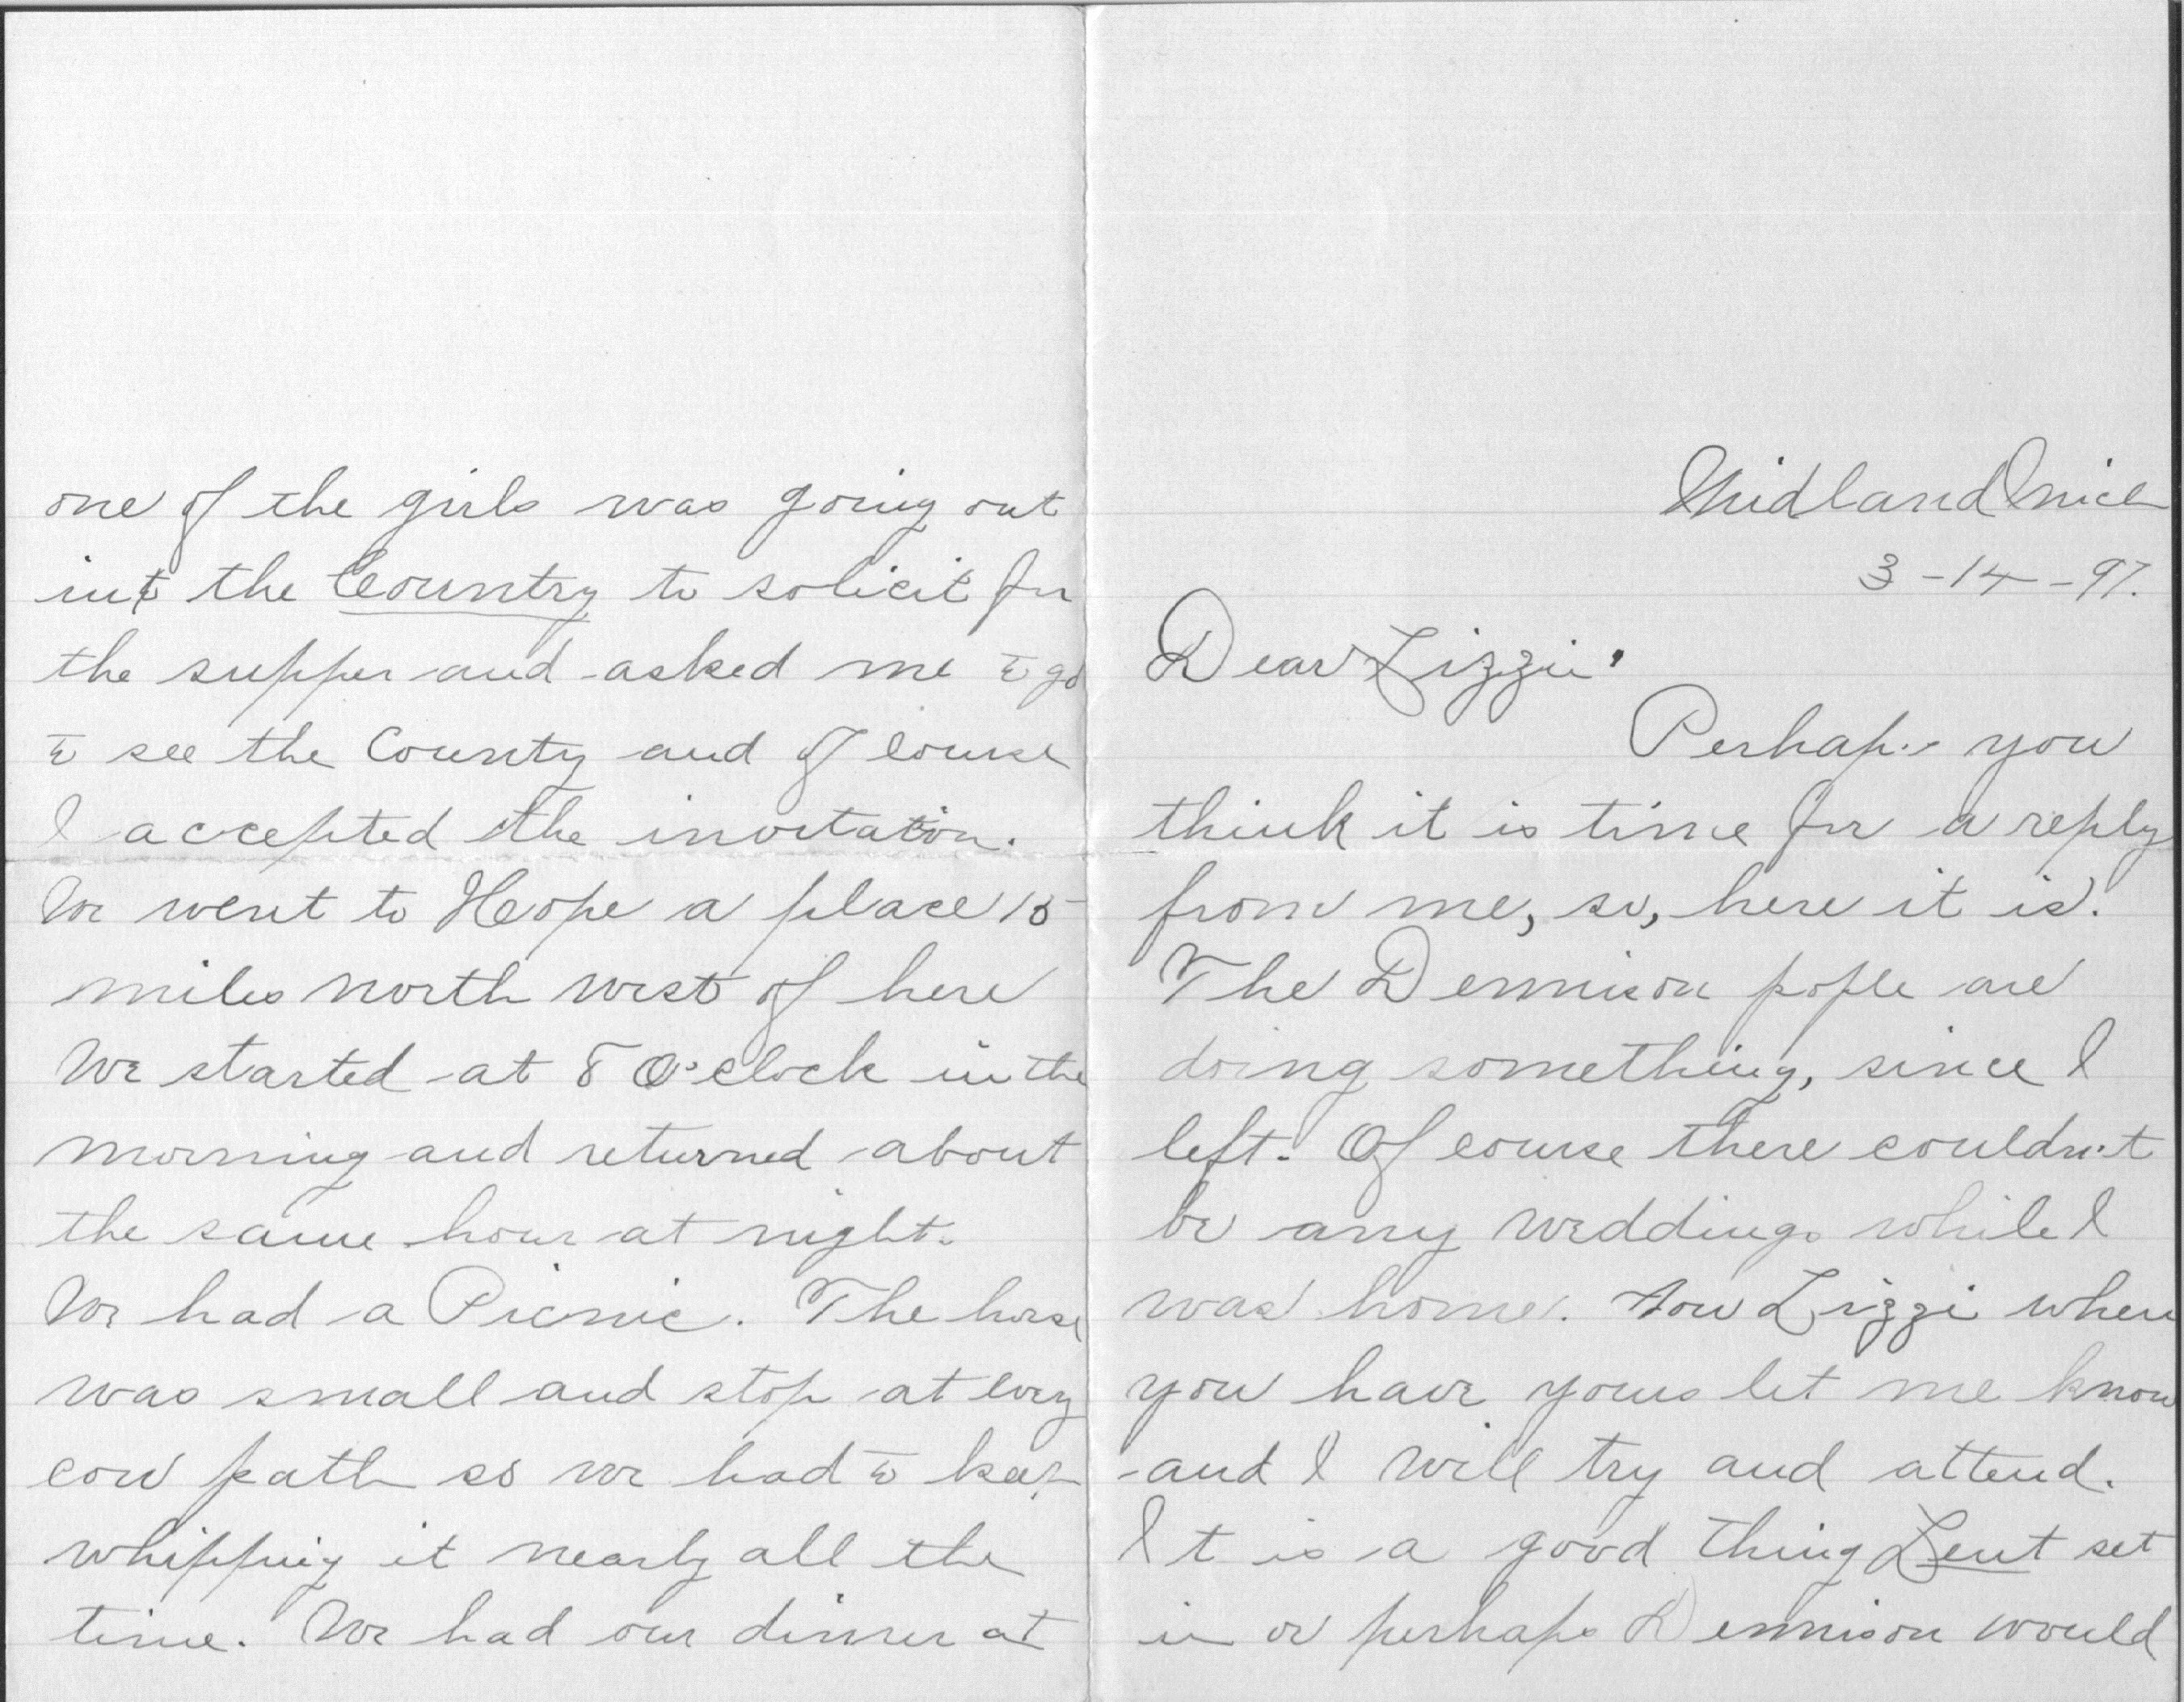 Midland Mich
3-14-97.
Dear Lizzie'
Perhaps you
think it is time for a reply
from me, so, here it is.
The Dennison pople are
doing something, since I
left. Of course there couldn't
be any weddings while I
was home. Now Lizzi when
you have yours let me know
and I will try and attend.
It is a good thing Lent set
in or perhaps Dennison would
one of the girls was going out
into the Country to solicit for
the supper and asked me to go
to see the County and of course
I accepted the invitation.
We went to Hope a place 15
miles north west of here
We started at 8 O'clock in the
morning and returned about
the same hour at night.
We had a Picnic. The horse
was small and stop at every
cow path so we had to keep
whipping it nearly all the
time. We had our dinner at